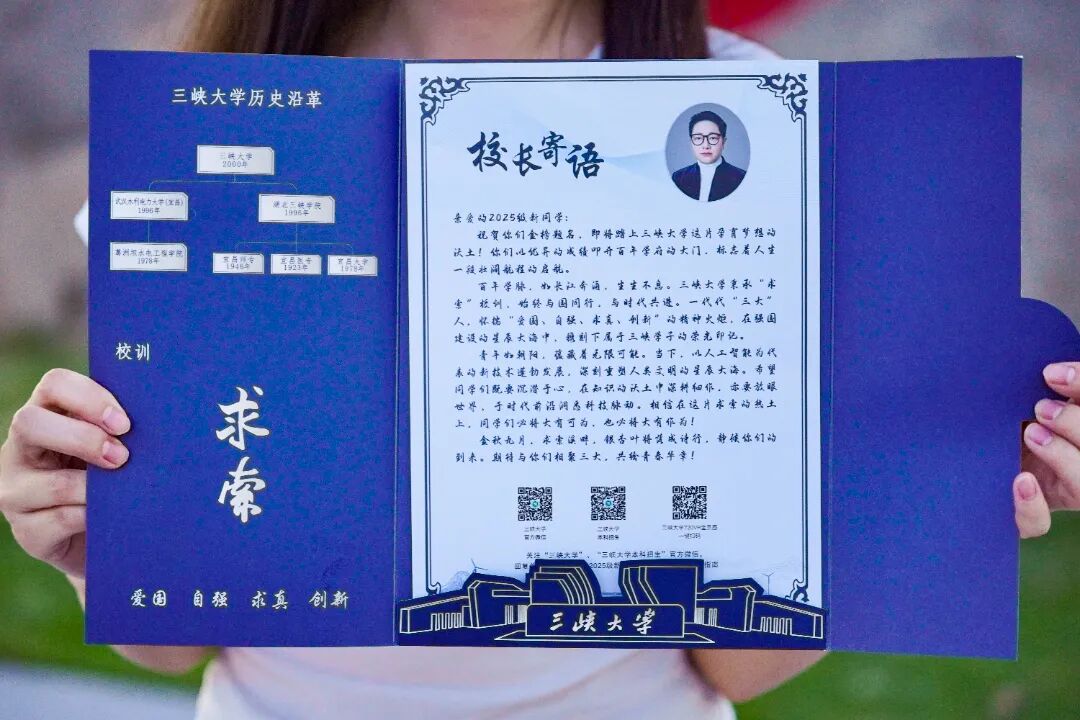 三峡大学历史沿革
三峡大学
2000年
武汉水利电力大学(宜昌)
1996年
湖北三峡学院
1996年
葛洲坝水电工程学院
1978年
宜昌师专
1946年
宜昌医专
1923年
宜昌大学
1978年
校训
求
索
爱国 自强 求真 创新
校长寄语
亲爱的2025级新同学：
祝贺你们金榜题名，即将踏上三峡大学这片孕育梦想的
沃土！你们以优异的成绩叩开百年学府的大门，标志着人生
一段壮阔航程的启航。
百年学脉，如长江奔涌，生生不息。三峡大学秉承“求
索”校训，始终与国同行，与时代共进。一代代“三大”
人，怀揣“爱国、自强、求真、创新”的精神火炬，在强国
建设的星辰大海中，镌刻下属于三峡学子的荣光印记。
青年如朝阳，蕴藏着无限可能。当下，以人工智能为代
表的新技术蓬勃发展，深刻重塑人类文明的星辰大海。希望
同学们既要沉潜于心，在知识的沃土中深耕细作，亦要放眼
世界，于时代前沿洞悉科技脉动。相信在这片求索的热土
上，同学们必将大有可为，也必将大有作为！
金秋九月，求索溪畔，银杏叶将翼成诗行，静候你们的
到来。期待与你们相聚三大，共绘青春华章！
三峡大学
官方微信
三峡大学
本科招生
三峡大学720VR全景图
一键扫码
关注“三峡大学”、“三峡大学本科招生”官方微信，
2025级新
指南
三峡大学